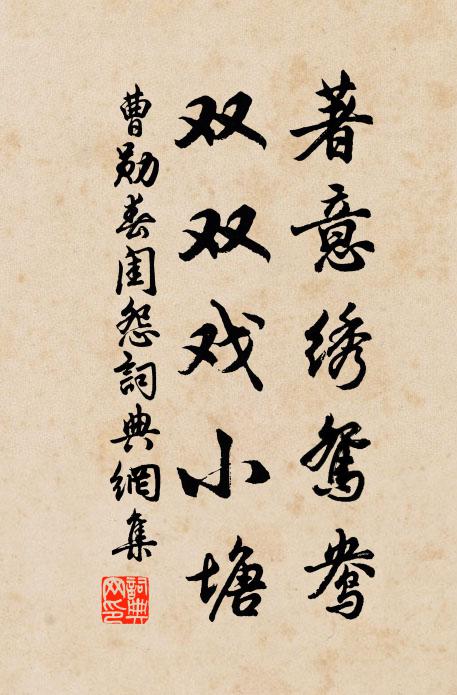 著意绣鸳鸯
双双戏小塘
曹勋春闺怨詞典網集
詞典网印